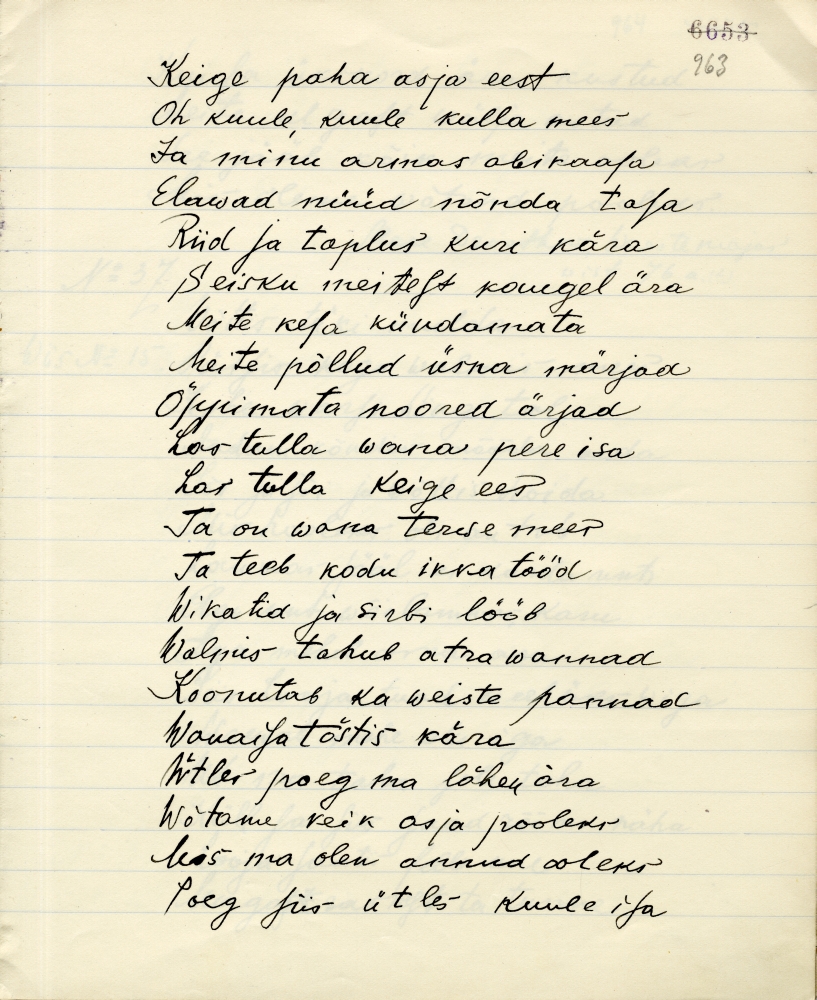 6653
963
Keige paha asja eest
Oh kuule, kuule kulla mees
Ja minu armas abikaasa
Elawad nüüd nõnda tasa
Riid ja taplus kuri kära
Seisku meitest kaugel ära
Meite kesa kündamata
Meite põllud üsna märjad
Õppimata noored ärjad
Las tulla wana pere isa
Las tulla keige ees
Ta on wana terwe mees
Ta teeb kodu ikka tööd
Wikatid ja sirbi lööb
Walmis tahub atra wannad
Koonutab ka weiste pannad
Wanaisa tõstis kära
Ütles poeg ma lähen ära
Wõtame keik asja pooleks
Mis ma olen annud ooleks
Poeg siis ütles kuule isa